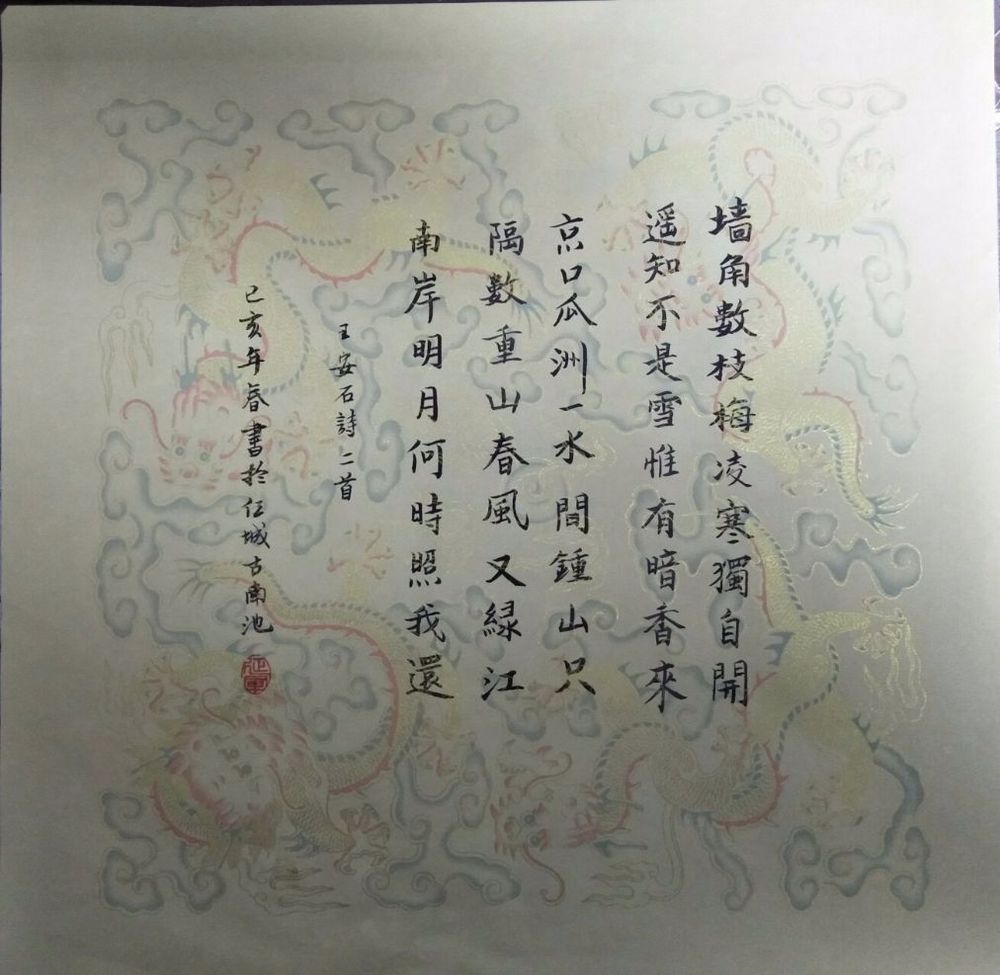 墙角數枝梅凌寒獨自開
遥知不是雪惟有暗香來
京口瓜洲一水間鍾山只
隔數重山春風又緑江
南岸明月何時照我還
王安石詩二首
己亥年春書於任城古南池